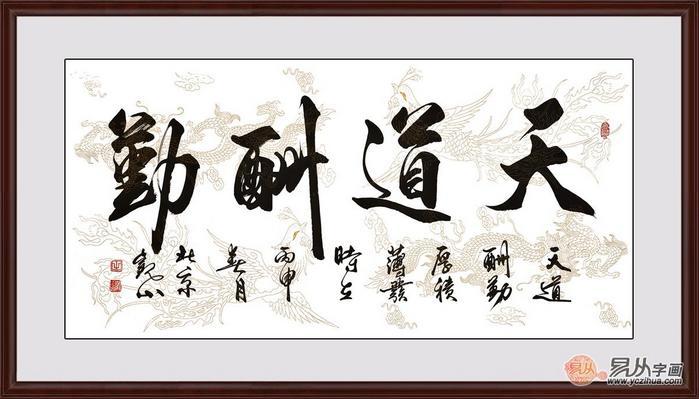 天道酬勤
天道
酬勤
厚積
薄發
時在
丙申
春月
北京
易从字画
www.yczihua.com